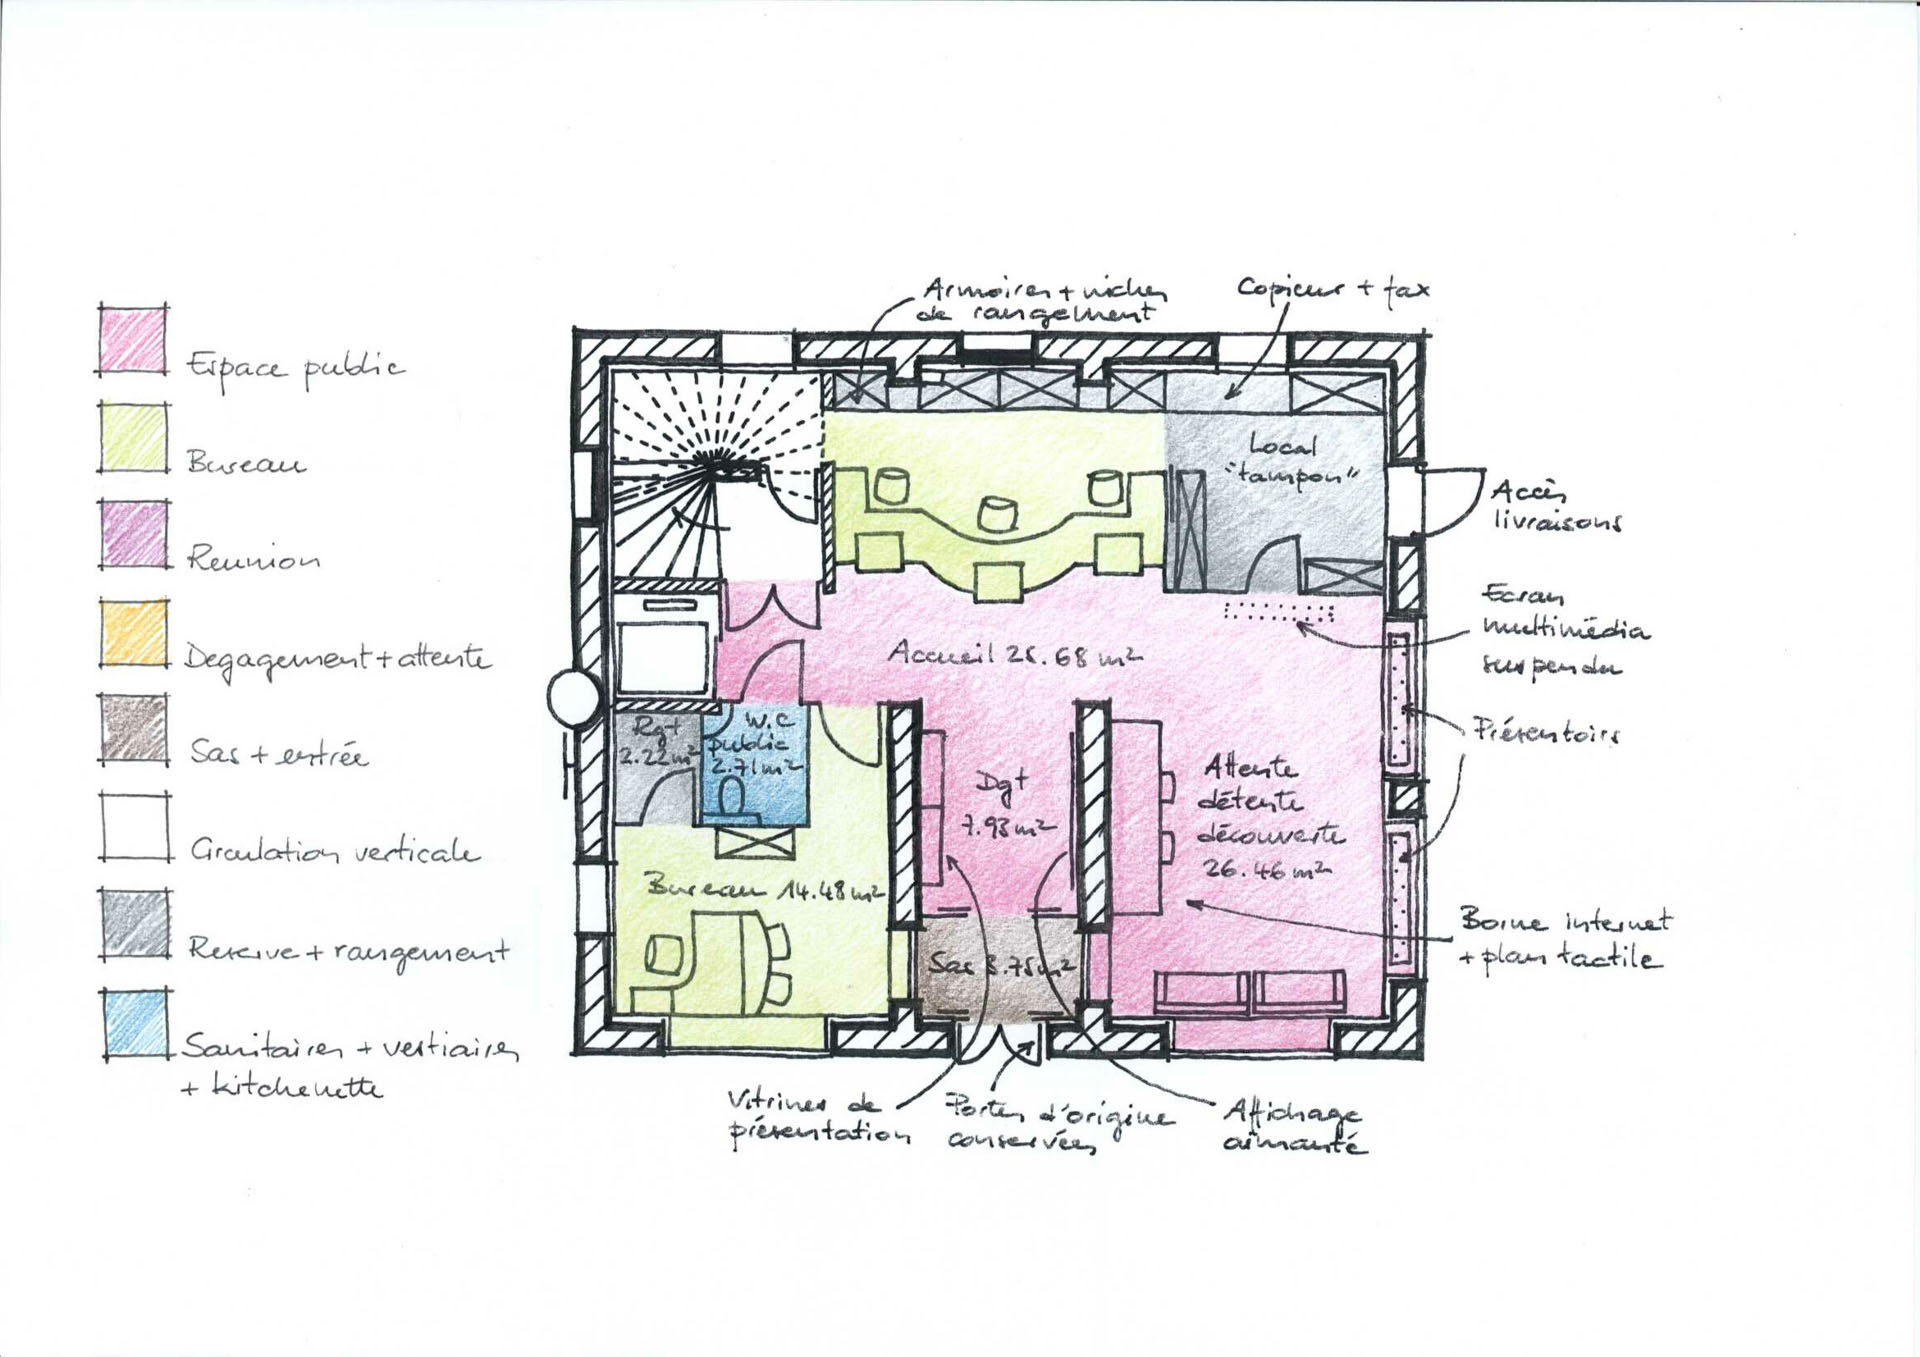 Espace public
Bureau
Reunion
Degagement + attente
Sas + entrée
Circulation verticale
Reserve + rangement
Sanitaires + vestiaires
+ kitchenette
Armoires + niches
de rangement
Copieur + fax
Local
"tampon"
Accès
livraisons
Ecran
multimédia
suspendu
Accueil 25.68 m²
Présentoirs
Rgt
2.22 m²
W.C
public
2.71 m²
Dgt
7.93 m²
Attente
détente
découverte
26.46 m²
Bureau 14.48 m²
Sas 3.75 m²
Borne internet
+ plan tactile
Vitrines de
présentation
Portes d'origine
conservées
Affichage
aimanté